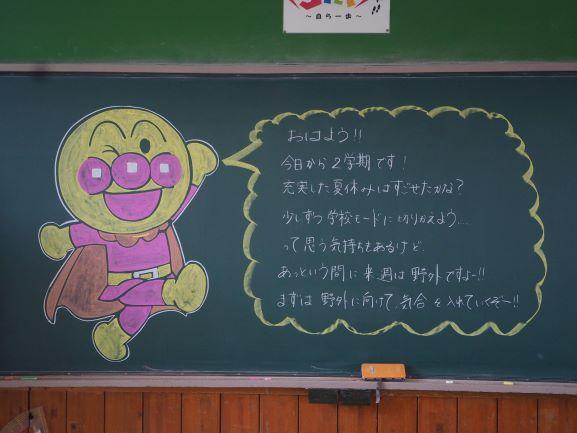 ～自ら一歩～ !!
おはよう!!
今日から2学期です!
充実した夏休みはすごせたかな?
少しずつ学校モードに切りかえよう…
って思う気持ちもあるけど、
あっという間に来週は野外ですよー!!
まずは野外に向けて、気合を入れていくぞー!!